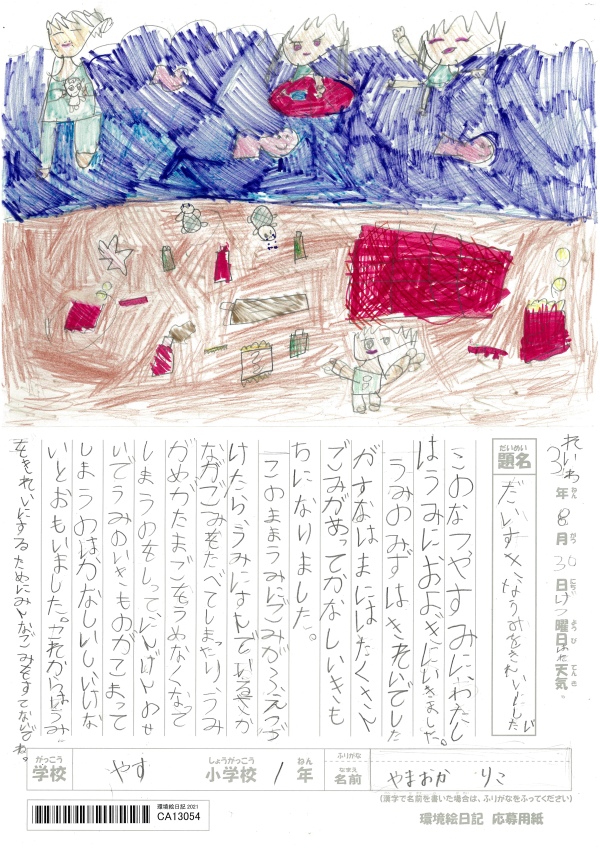 れいわ
3年 8月 30日 げつ曜日 はれ 天気
ねん がつ にち ようび てんき
だいめい
題名
だいすきなうみをきれいにしたい
このなつやすみに、わたし
はうみにおよぎにいきました。
うみのみずはきれいでした
がすなはまにはたくさん
ごみがあってかなしいきも
ちになりました。
このままうみにごみがふえつづ
けたら、うみにすんでいるさか
ながごみをたべてしまったり、うみ
がめがたまごをうめなくなって
しまうのをしってにんげんのせ
いでうみのいきものがこまって
しまうのはかなしいしいけな
いとおもいました。これからはうみ
をきれいにするためにみんなごみをすてないでね。
がっこう
学校
やす
しょうがっこう
小学校
1
ねん
年
ふりがな
なまえ
名前
やまおか りこ
(漢字で名前を書いた場合は、ふりがなをふってください)
環境絵日記 2021
CA13054
環境絵日記 応募用紙